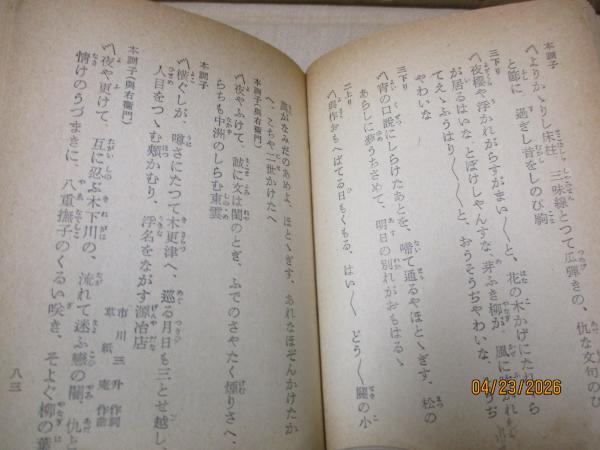 〽よりかゝりし床柱　三味線とつて爪彈きの、仇な文句のひ
と節に　過ぎし昔をしのび駒
三下り
〽夜櫻や浮かれがらすがまい〳〵と、花の木かげにたれやら
が居るはいな　とぼけしやんすな　芽ふき柳が　風に吹かれ
てえゝふうはり〳〵と、おうそうぢやわいな、
やわいな
三下り
〽宵の口說にしらけたあとを、啼て通るやほとゝぎす、松の
あらしに夢うちさめて、明日の別れがおもはるゝ
二上り
〽與作おもへばてる日もくもる、はい〳〵　どう〳〵關の小
風がなみだのあめよ、ほとゝぎす、あれなほぞんかけたか
へ、こちや二世かけたへ
本調子(與右衞門)
〽夜やふけて、誠に文は閨のとぎ、ふでのさやたく煙りさへ、
らちも中洲のしらむ東雲
本調子
〽橫ぐしが、噂さにたつて木更津へ、巡る月日も三とせ越し、
人目をつゝむ頰かむり、浮名をながす源冶店
市川三升作詞
草紙庵作曲
本調子(與右衞門)
〽夜や更けて、互に忍ぶ木下川の、流れて迷ふ戀の闇、仇と
情けのうづまきに、八重撫子のくるい咲き、そよぐ柳の葉
八三
04/23/2026